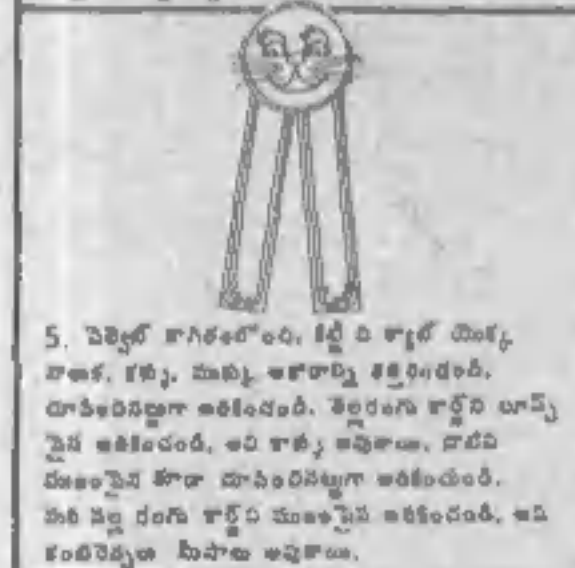 5. వెల్వెట్ కాగితంలోంచి, కిట్టి ది క్యాట్ యొక్క
నాలుక, కళ్ళు, ముక్కు ఆకారాన్ని కత్తిరించండి.
చూపించినట్లుగా అతికించండి. తెల్లరంగు కార్డ్‌ని లూప్స్
పైన అతికించండి, అవి కాళ్ళు అవుతాయి. వాటిని
ముఖంపైన కూడా చూపించినట్లుగా అతికించండి.
మరి నల్ల రంగు కార్డ్‌ని ముఖంపైన అతికించండి, అవి
కంటిరెప్పలు మీసాలు అవుతాయి.